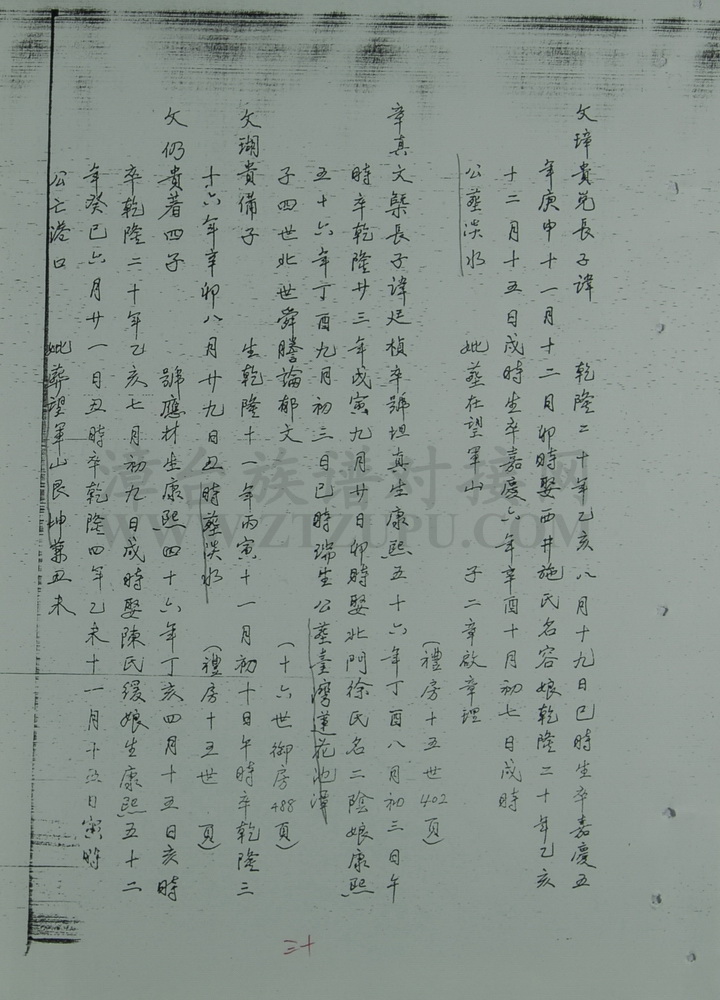 文璋貴兌長子諱　乾隆二十年乙亥八月十九日巳時生卒嘉慶五
年庚申十一月十二月卯時娶西井施氏名容娘乾隆二十年乙亥
十二月十五日戌時生卒嘉慶六年辛酉十月初七日戌時
公葬淡水　妣葬在望軍山　子二章啟章理
(禮房十五世402頁)
章真文槩長子諱廷楨卒號坦真生康熙五十六年丁酉八月初三日午
時卒乾隆廿三年戊寅九月廿日卯時娶北門徐氏名二陰娘康熙
五十六年丁酉九月初三日巳時瑞生公葬臺灣蓮花池潭
子四世北世舜勝論郁文　(十六世御房488頁)
文瑚貴備子　生乾隆十一年丙寅十一月初十日午時卒乾隆三
十六年辛卯八月廿九日丑時葬淡水　(禮房十五世　頁)
文仍貴著四子　號應材生康熙四十六年丁亥四月十五日亥時
卒乾隆二十年乙亥七月初九日戌時娶陳氏緩娘生康熙五十二
年癸巳六月廿一日丑時卒乾隆四年乙未十一月十五日寅時
公亡港口　妣葬望軍山艮坤兼丑未
三十
漳台族譜对接网
WWW.ZTZUPU.COM